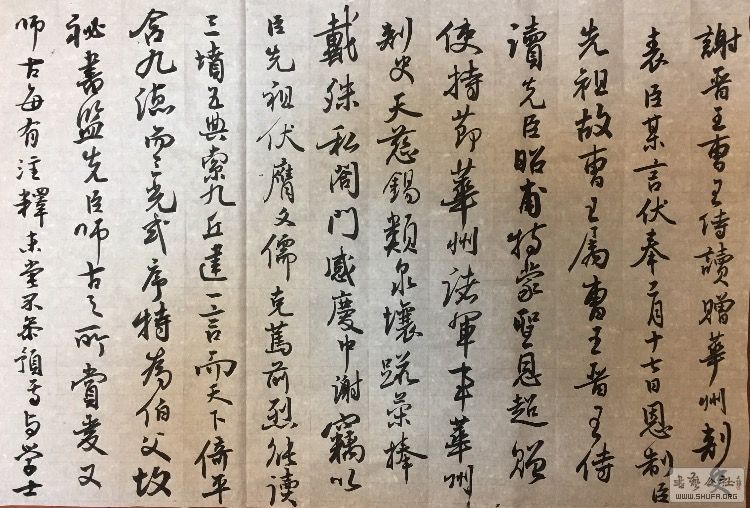 謝晋王曹王侍讀贈華州刺史
表臣某言伏奉二月十七日恩制臣
先祖故曹王属曹王晋王侍
讀先臣昭甫特蒙聖恩超贈
使持節華州諸軍事華州
刺史天慈錫類泉壤踨榮捧
戴殊私闔門感慶中謝竊以
臣先祖伏膺文儒克篤前烈能讀
三墳五典索九丘建一言而天下倚平
含九德而三光式序特為伯父故
祕書監先臣師古之所賞愛又
師古每有注釋未嘗不參預焉与學士
WWW.SHUFA.ORG